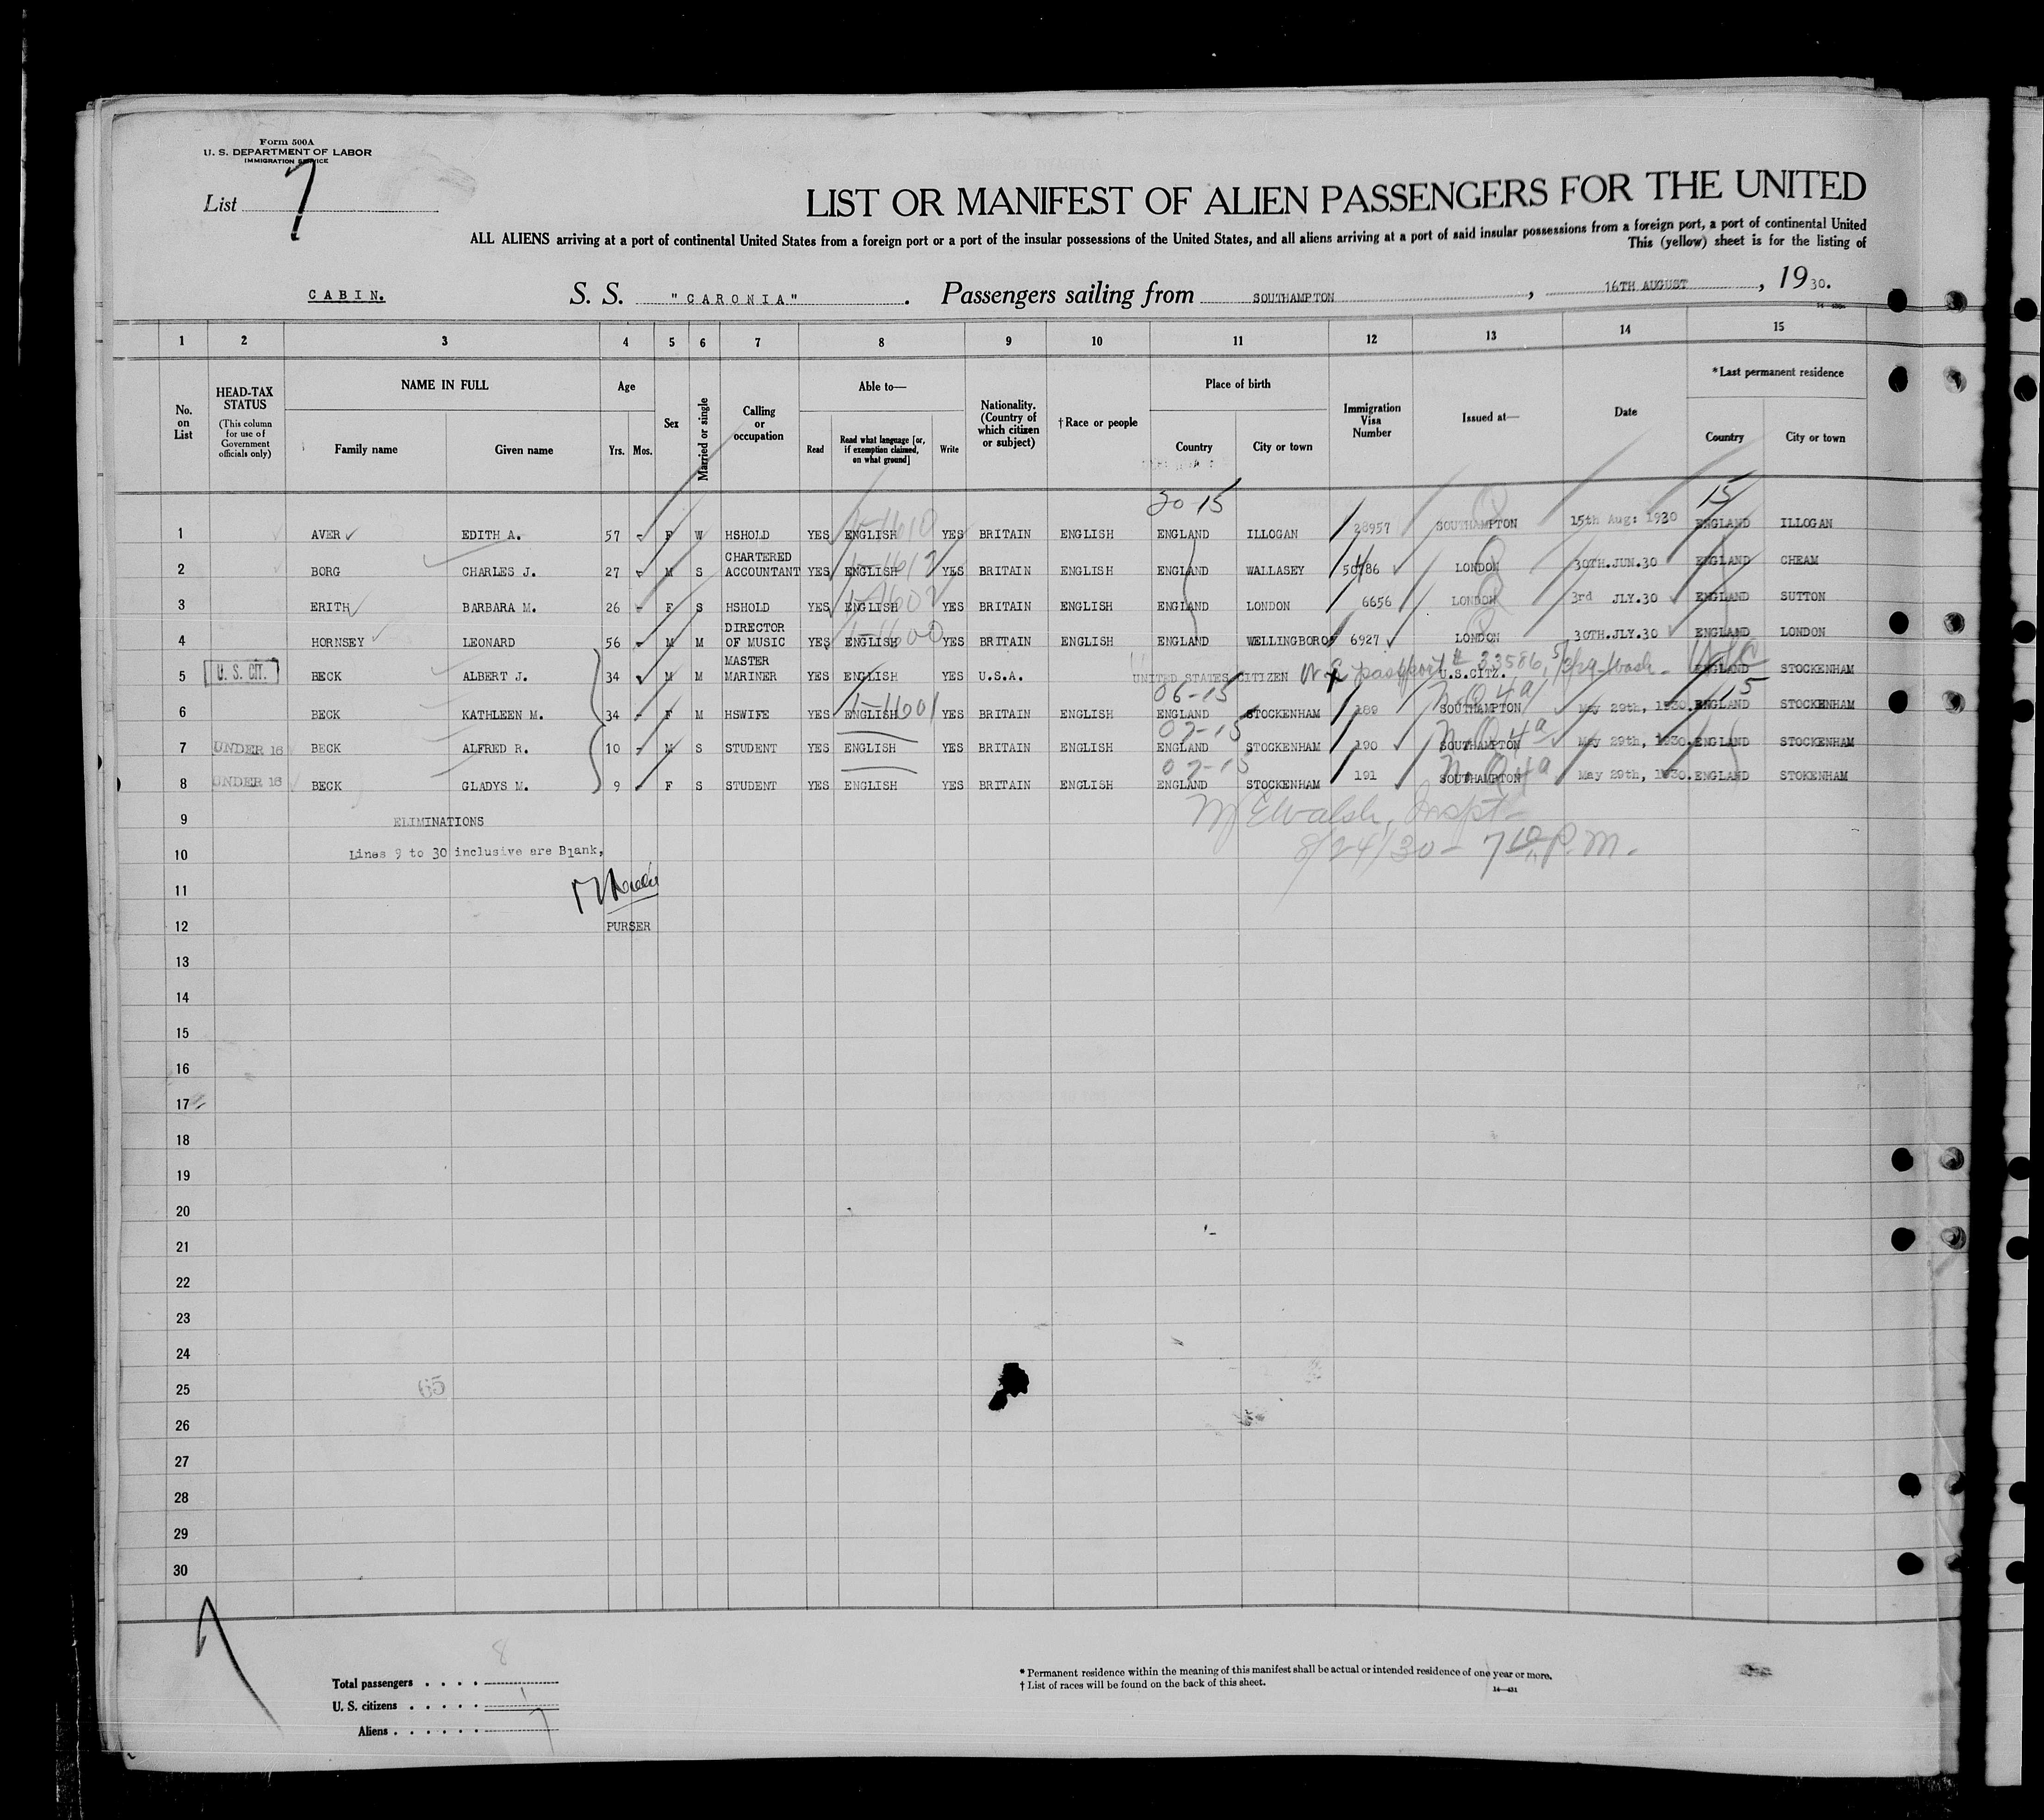 Form 500A
U. S. DEPARTMENT OF LABOR
IMMIGRATION SERVICE
List 7
LIST OR MANIFEST OF ALIEN PASSENGERS FOR THE UNITED
ALL ALIENS arriving at a port of continental United States from a foreign port or a port of the insular possessions of the United States, and all aliens arriving at a port of said insular possessions from a foreign port, a port of continental United
This (yellow) sheet is for the listing of
CABIN. S. S. "CARONIA" . Passengers sailing from SOUTHAMPTON , 16TH AUGUST , 1930.
1 2 3 4 5 6 7 8 9 10 11 12 13 14 15
No. on List
HEAD-TAX STATUS (This column for use of Government officials only)
NAME IN FULL Family name Given name
Age Yrs. Mos.
Sex
Married or single
Calling or occupation
Able to— Read Read what language [or, if exemption claimed, on what ground] Write
Nationality. (Country of which citizen or subject)
†Race or people
Place of birth Country City or town
Immigration Visa Number
Issued at—
Date
*Last permanent residence Country City or town
20 15 15
1 AVER EDITH A. 57 F W HSHOLD YES ENGLISH YES BRITAIN ENGLISH ENGLAND ILLOGAN 28957 SOUTHAMPTON 15th Aug: 1930 ENGLAND ILLOGAN
2 BORG CHARLES J. 27 M S CHARTERED ACCOUNTANT YES ENGLISH YES BRITAIN ENGLISH ENGLAND WALLASEY 50786 LONDON 30TH.JUN.30 ENGLAND CHEAM
3 ERITH BARBARA M. 26 F S HSHOLD YES ENGLISH YES BRITAIN ENGLISH ENGLAND LONDON 6656 LONDON 3rd JLY.30 ENGLAND SUTTON
4 HORNSEY LEONARD 56 M M DIRECTOR OF MUSIC YES ENGLISH YES BRITAIN ENGLISH ENGLAND WELLINGBORO 6927 LONDON 30TH.JLY.30 ENGLAND LONDON
5 U. S. CIT. BECK ALBERT J. 34 M M MASTER MARINER YES ENGLISH YES U.S.A. UNITED STATES CITIZEN passport # 33586, Wash- U.S.CITZ. ENGLAND STOCKENHAM
06-15 N.Q 4a 15
6 BECK KATHLEEN M. 34 F M HSWIFE YES ENGLISH YES BRITAIN ENGLISH ENGLAND STOCKENHAM 189 SOUTHAMPTON May 29th, 1930. ENGLAND STOCKENHAM
07-15 N.Q 4a
7 UNDER 16 BECK ALFRED R. 10 M S STUDENT YES ENGLISH YES BRITAIN ENGLISH ENGLAND STOCKENHAM 190 SOUTHAMPTON May 29th, 1930. ENGLAND STOCKENHAM
07-15 N.Q 4a
8 UNDER 16 BECK GLADYS M. 9 F S STUDENT YES ENGLISH YES BRITAIN ENGLISH ENGLAND STOCKENHAM 191 SOUTHAMPTON May 29th, 1930. ENGLAND STOKENHAM
9 ELIMINATIONS M E Walsh, Inspt-
10 Lines 9 to 30 inclusive are Blank, 8/24/30- 7 10 P.M.
11
12 PURSER
13
14
15
16
17
18
19
20
21
22
23
24
25 65
26
27
28
29
30
Total passengers . . . . 8
U. S. citizens . . . . . 1
Aliens . . . . . . 7
* Permanent residence within the meaning of this manifest shall be actual or intended residence of one year or more.
† List of races will be found on the back of this sheet.